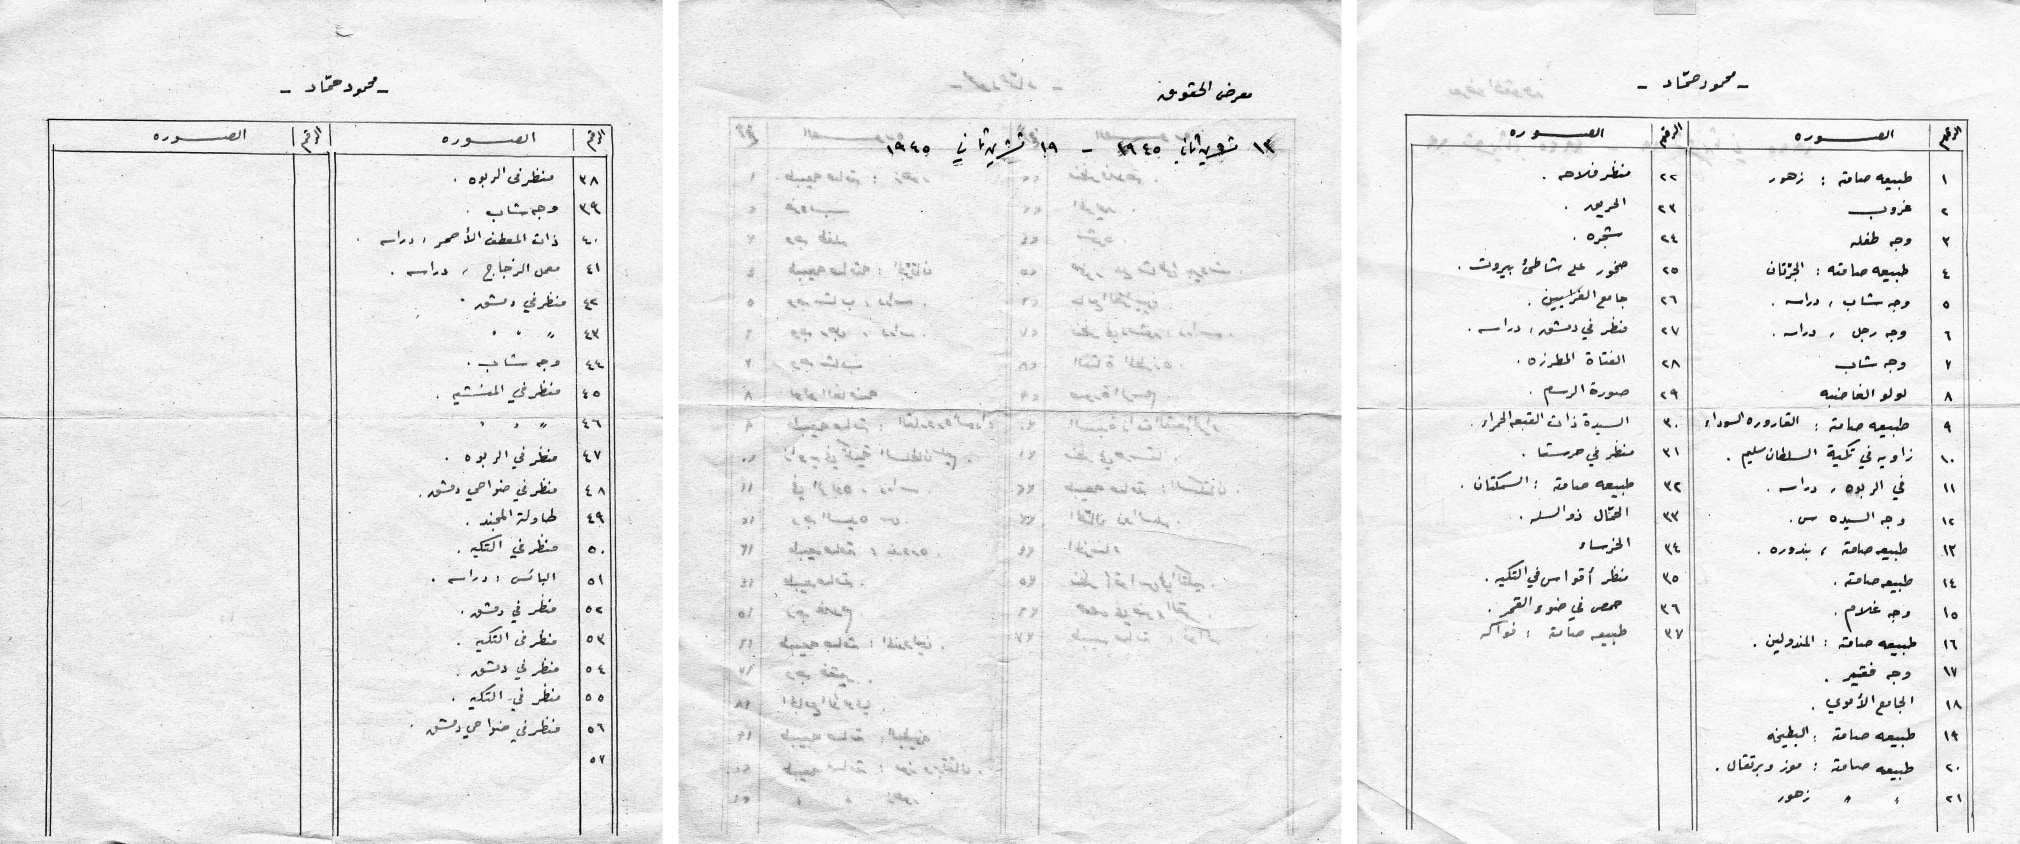 - محمود حمّاد -
الرقم الصوره الرقم الصوره
١ طبيعه صامته : زهور
٢ غروب
٣ وجه طفله
٤ طبيعه صامته : الجرّتان
٥ وجه شاب ، دراسه .
٦ وجه رجل ، دراسه .
٧ وجه شاب
٨ لولو الغاضبه
٩ طبيعه صامته : القاروره السوداء
١٠ زاويه في تكية السلطان سليم .
١١ في الربوه ، دراسه .
١٢ وجه السيده س .
١٣ طبيعه صامته ، بندوره .
١٤ طبيعه صامته .
١٥ وجه غلام .
١٦ طبيعه صامته : المندولين .
١٧ وجه فقير .
١٨ الجامع الأموي .
١٩ طبيعه صامته : البطيخه
٢٠ طبيعه صامته : موز وبرتقال .
٢١ " " زهور
٢٢ منظر فلاحه .
٢٣ الحريق .
٢٤ شجره .
٢٥ صخور على شاطئ بيروت .
٢٦ جامع
٢٧ منظر في دمشق ، دراسه .
٢٨ الفتاة المطرزه .
٢٩ صورة الرسام .
٣٠ السيدة ذات القبعه الحمراء .
٣١ منظر في حرستا .
٣٢ طبيعه صامته : السمكتان .
٣٣ الحمّال ذو السله .
٣٤ الخرساء
٣٥ منظر أقواس في التكيه .
٣٦ حمص في ضوء القمر .
٣٧ طبيعه صامته : فواكه
معرض الحقوق
١٣ تشرين ثاني ١٩٤٥ - ١٩ تشرين ثاني ١٩٤٥
٢
- محمود حمّاد -
الرقم الصوره الرقم الصوره
٣٨ منظر في الربوه .
٣٩ وجه شاب .
٤٠ ذات المعطف الأحمر ، دراسه .
٤١ معمل الزجاج ، دراسه .
٤٢ منظر في دمشق .
٤٣ " " "
٤٤ وجه شاب .
٤٥ منظر في المنشيه .
٤٦ " " "
٤٧ منظر في الربوه .
٤٨ منظر في ضواحي دمشق .
٤٩ طاولة المجند .
٥٠ منظر في التكيه .
٥١ البائس ، دراسه .
٥٢ منظر في دمشق .
٥٣ منظر في التكيه .
٥٤ منظر في دمشق .
٥٥ منظر في التكيه .
٥٦ منظر في ضواحي دمشق .
٥٧